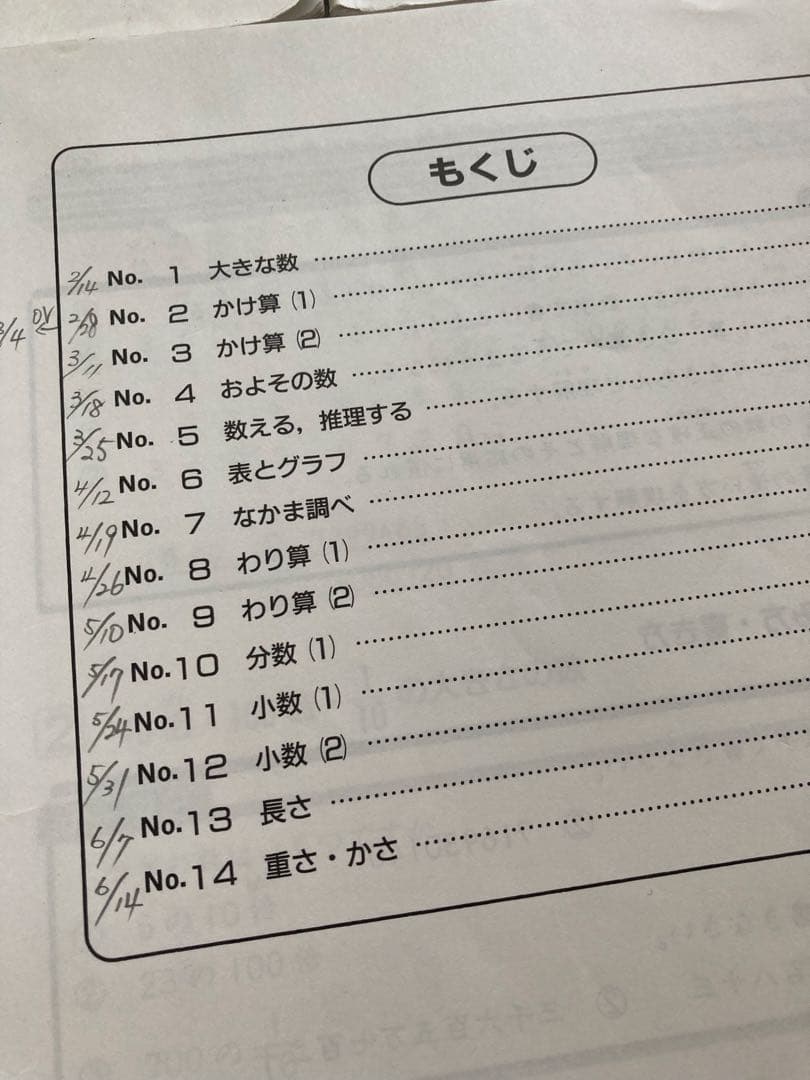 もくじ
2/14 No. 1 大きな数
3/4 DV 2/28 No. 2 かけ算(1)
3/11 No. 3 かけ算(2)
3/18 No. 4 およその数
3/25 No. 5 数える，推理する
4/12 No. 6 表とグラフ
4/19 No. 7 なかま調べ
4/26 No. 8 わり算(1)
5/10 No. 9 わり算(2)
5/17 No.10 分数(1)
5/24 No.11 小数(1)
5/31 No.12 小数(2)
6/7 No.13 長さ
6/14 No.14 重さ・かさ